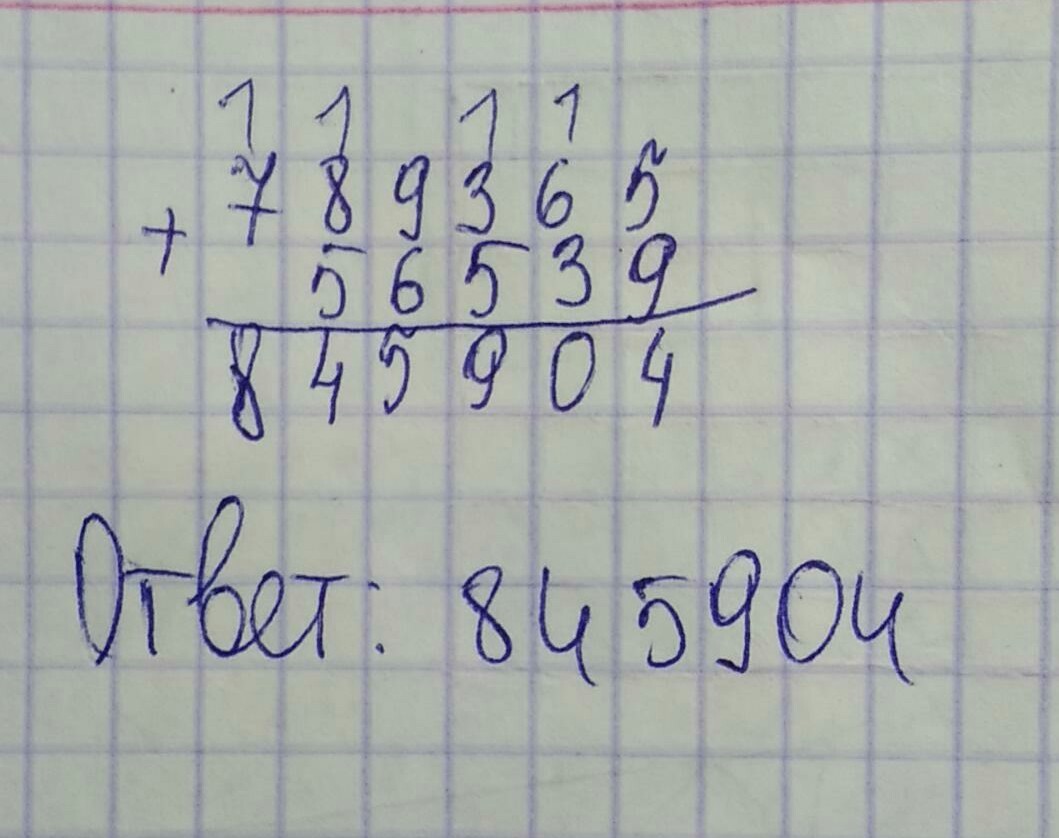 1 1 1 1
7 8 9 3 6 5
+
5 6 5 3 9
8 4 5 9 0 4
Ответ: 845904